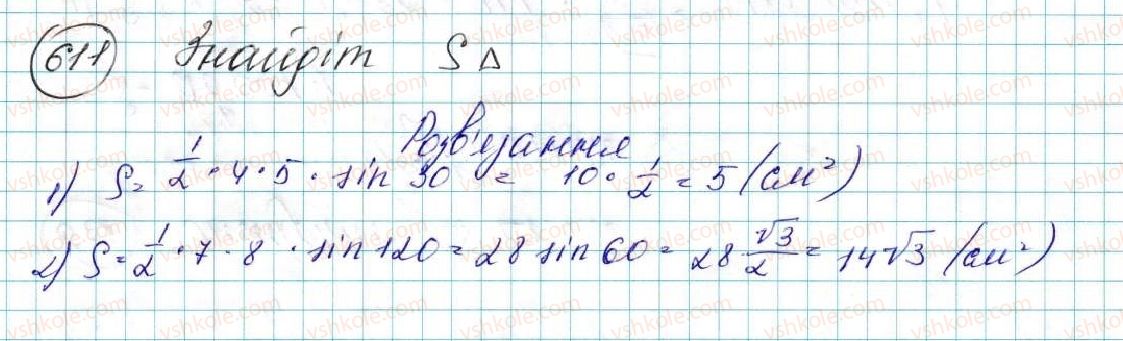 611 Знайдіт S Δ
Розв'язання
1) S = 1/2 · 4 · 5 · sin 30 = 10 · 1/2 = 5 (см²)
2) S = 1/2 · 7 · 8 · sin 120 = 28 sin 60 = 28 · √3/2 = 14√3 (см²)
vshkole.com